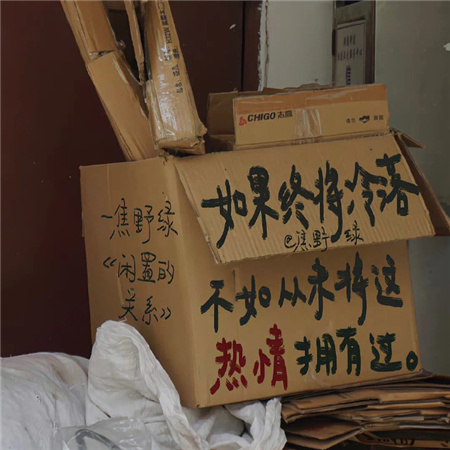 CHIGO 志高
如果终将冷落
@焦野绿
不如从未将这
热情拥有过。
一焦野绿
《闲置的
关系》